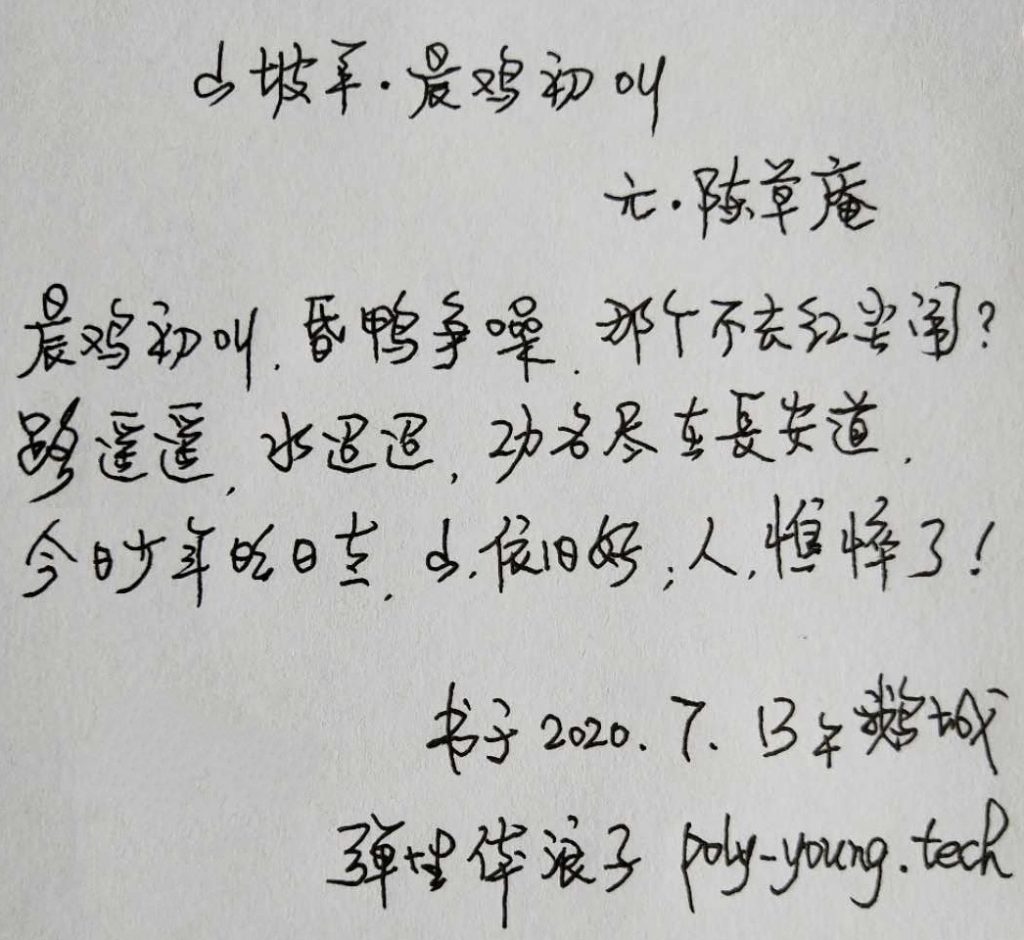 山坡羊·晨鸡初叫
元·陈草庵
晨鸡初叫,昏鸭争噪.那个不去红尘闹?
路遥遥,水迢迢,功名尽在長安道.
今日少年明日老.山,依旧好;人,憔悴了!
书于2020.7.13午鹅城
弹性体浪子 poly-young.tech